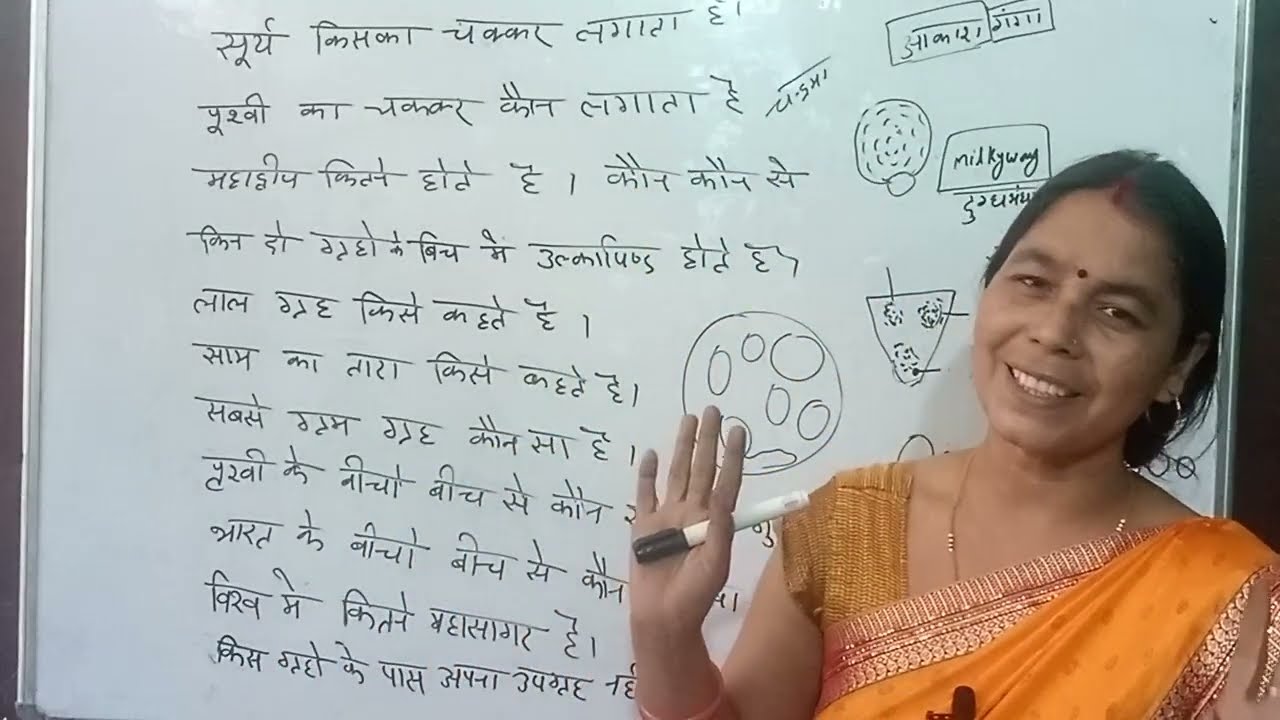 सूर्य किसका चक्कर लगाता है।
पृथ्वी का चक्कर कौन लगाता है
महाद्वीप कितने होते है । कौन कौन से
किन दो ग्रहो के बिच में उल्कापिण्ड होते है
लाल ग्रह किसे कहते है ।
साम का तारा किसे कहते है।
सबसे गरम ग्रह कौन सा है ।
पृथ्वी के बीचो बीच से कौन
भारत के बीचो बीच से कौन
विश्व मे कितने महासागर है।
किस ग्रहो के पास अपना उपग्रह
आकाश गंगा
milkyway